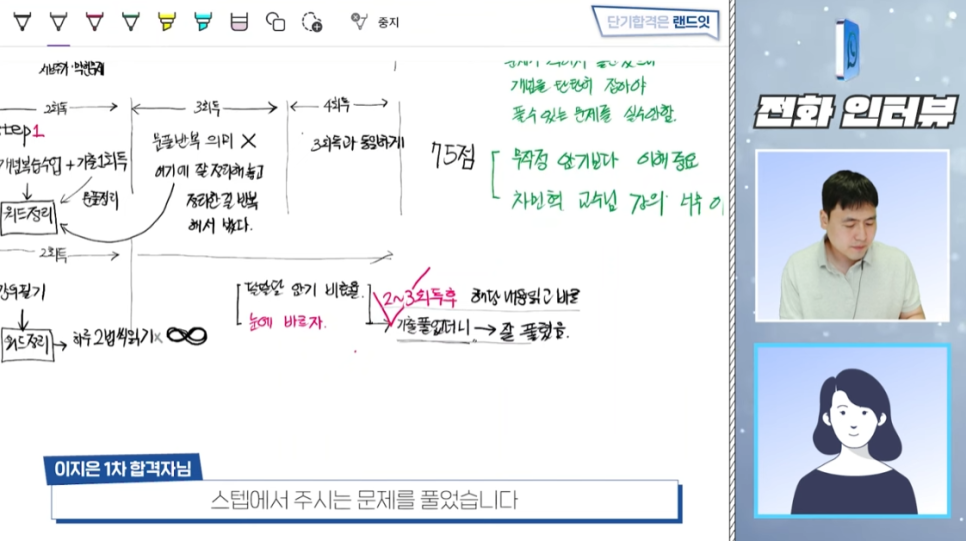 중지
단기합격은 랜드잇
전화 인터뷰
2회독
3회독
4회독
step1
개념복습수업 + 기출1회독
문풀정리
워드정리
문풀반복 의미 X
여기에 잘 정리해놓고
정리한걸 반복
해서 봤다.
3회독과 동일하게
개념을 탄탄히 잡아야
풀수 있는 문제를 실수안함.
75점
무작정 암기보다 이해 중요
차민혁 교수님 강의 너무
2회독
필기
워드정리
하루 2번씩읽기 x ∞
달달달 암기 비효율.
눈에 바르자.
2~3회독후 해당 내용읽고 바로
기출풀었더니 → 잘 풀렸음.
이지은 1차 합격자님
스텝에서 주시는 문제를 풀었습니다